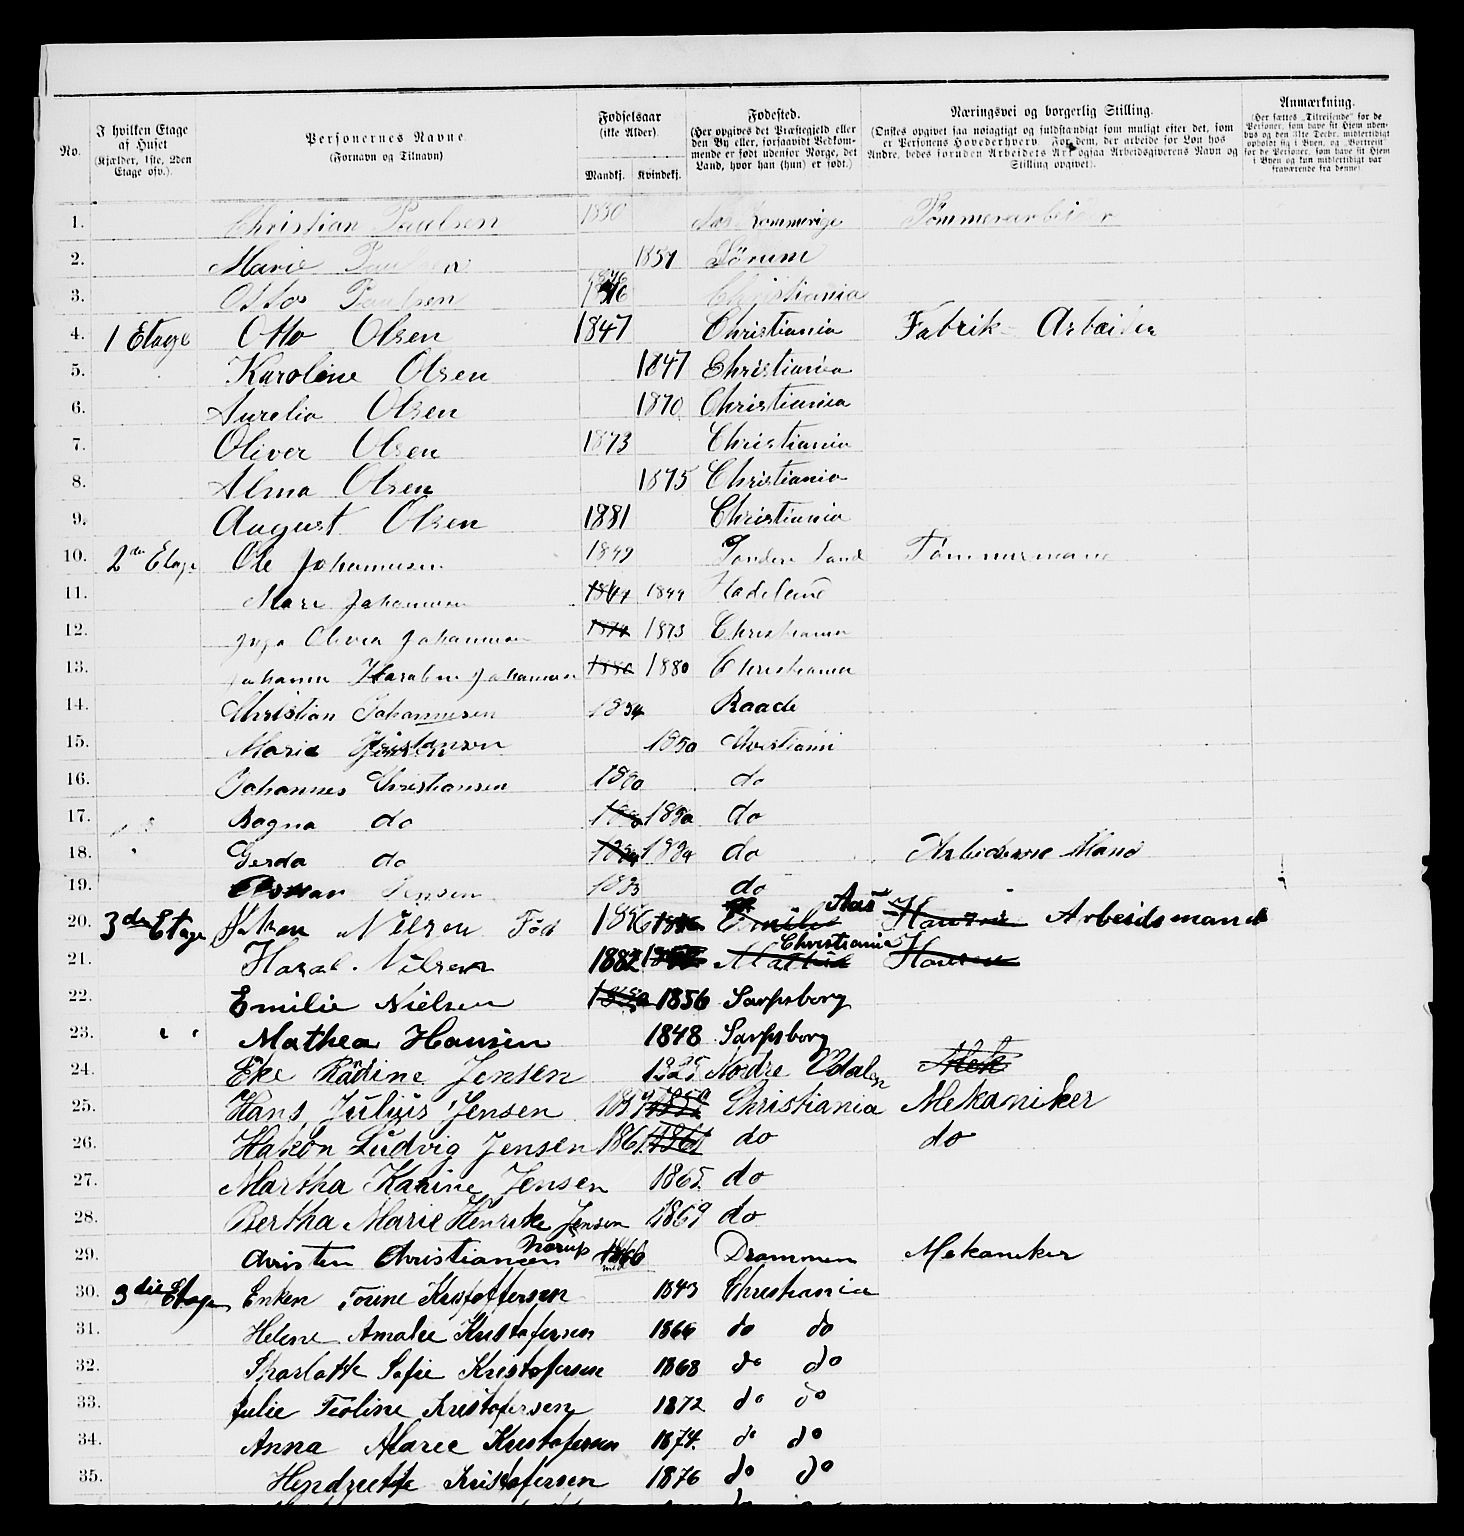 No.
I hvilken Etage af Huset (Kjælder, 1ste, 2den Etage osv.).
Personernes Navne. (Fornavn og Tilnavn)
Fødselsaar (ikke Alder).
Mandkj. Kvindekj.
Fødested. (Her opgives det Præstegjeld eller den By eller, forsaavidt Vedkommende er født udenfor Norge, det Land, hvor han (hun) er født.)
Næringsvei og borgerlig Stilling. (Ønskes opgivet saa nøiagtigt og fuldstændigt som muligt efter det, som er Personens Hovederhverv. For dem, der arbeide for Løn hos Andre, bedes foruden Arbeidets Art ogsaa Arbeidsgiverens Navn og Stilling opgivet.)
Anmærkning. (Her sættes „Tilreisende" for de Personer, som have sit Hjem udenbys og den 31te Decbr. midlertidigt opholdt sig i Byen, og „Bortreist" for de Personer, som have sit Hjem i Byen og kun midlertidigt var fraværende fra denne).
1. Christian Paulsen 1830 Næs Romerige Tømmerarbeider
2. Marie Paulsen 1851 Sörum
3. Ottos Paulsen 1876 Christiania
4. 1 Etage Otto Olsen 1847 Christiania Fabrik Arbeider
5. Karoline Olsen 1847 Christiania
6. Aurelia Olsen 1870 Christiania
7. Oliver Olsen 1873 Christiania
8. Alma Olsen 1875 Christiania
9. August Olsen 1881 Christiania
10. 2den Etage Ole Johannesen 1849 Land Tømmermand
11. Mari Johannesen 1844 Hadeland
12. Olivia Johannesen 1873 Christiania
13. Johanna Johannesen 1880 1880 Christiania
14. Christian Johannesen 1854 Raade
15. Marie 1850 Christiania
16. Johannes Christiansen 1880 do
17. Ragna do 1880 do
18. Gerda do do Arbeidsmand
19. Jensen 1883 do
20. 3die Etage Nilsen Fød 1856 Aas Arbeidsmand
21. Haral. Nilsen 1882 Christiania
22. Emilie Nielsen 1856 Sarpsborg
23. Mathea Hansen 1848 Sarpsborg
24. Eke Jensen 1825 Nordre Odalen Mek
25. Hans Julius Jensen 1859 Christiania Mekaniker
26. Hakon Ludvig Jensen 1861 1861 do do
27. Martha Karine Jensen 1865 do
28. Bertha Marie Henrike Jensen 1869 do
29. Christen Christiansen Norup 1860 Drammen Mekaniker
30. 3die Etage Enken Torine Kristoffersen 1843 Christiania
31. Helene Amalie Kristofersen 1866 do do
32. Sharlotte Sofie Kristofersen 1868 do do
33. Julie Teoline Kristofersen 1872 do do
34. Anna Marie Kristofersen 1874. do do
35. Hendreette Kristofersen 1876 do do